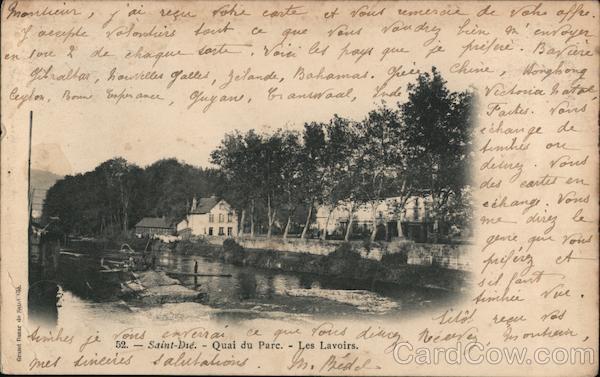 Monsieur, j'ai reçu votre carte et vous remercie de votre offre.
J'accepte volontiers tout ce que vous voudrez bien m'envoyer
en 1 ou 2 de chaque sorte. Voici les pays que je préfère. Bavière
Gibraltar, Nouvelles Galles, Zélande, Bahamas. Grèce Chine, Hongkong
Ceylon, Bonne Espérance, Guyane, Transwaal, Inde
Victoria Natal,
Faites. Vous
échange de
timbres ou
désirez. Vous
des cartes en
échange. Vous
me direz le
genre que vous
préférez et
s'il faut
timbre vue.
Sitôt reçu vos
timbres je vous enverrai ce que vous désirez. Recevez, Monsieur,
mes sincères salutations. M. Bédel
52. — Saint-Dié. - Quai du Parc. - Les Lavoirs.
Grand Bazar de Saint-Dié.
CardCow.com